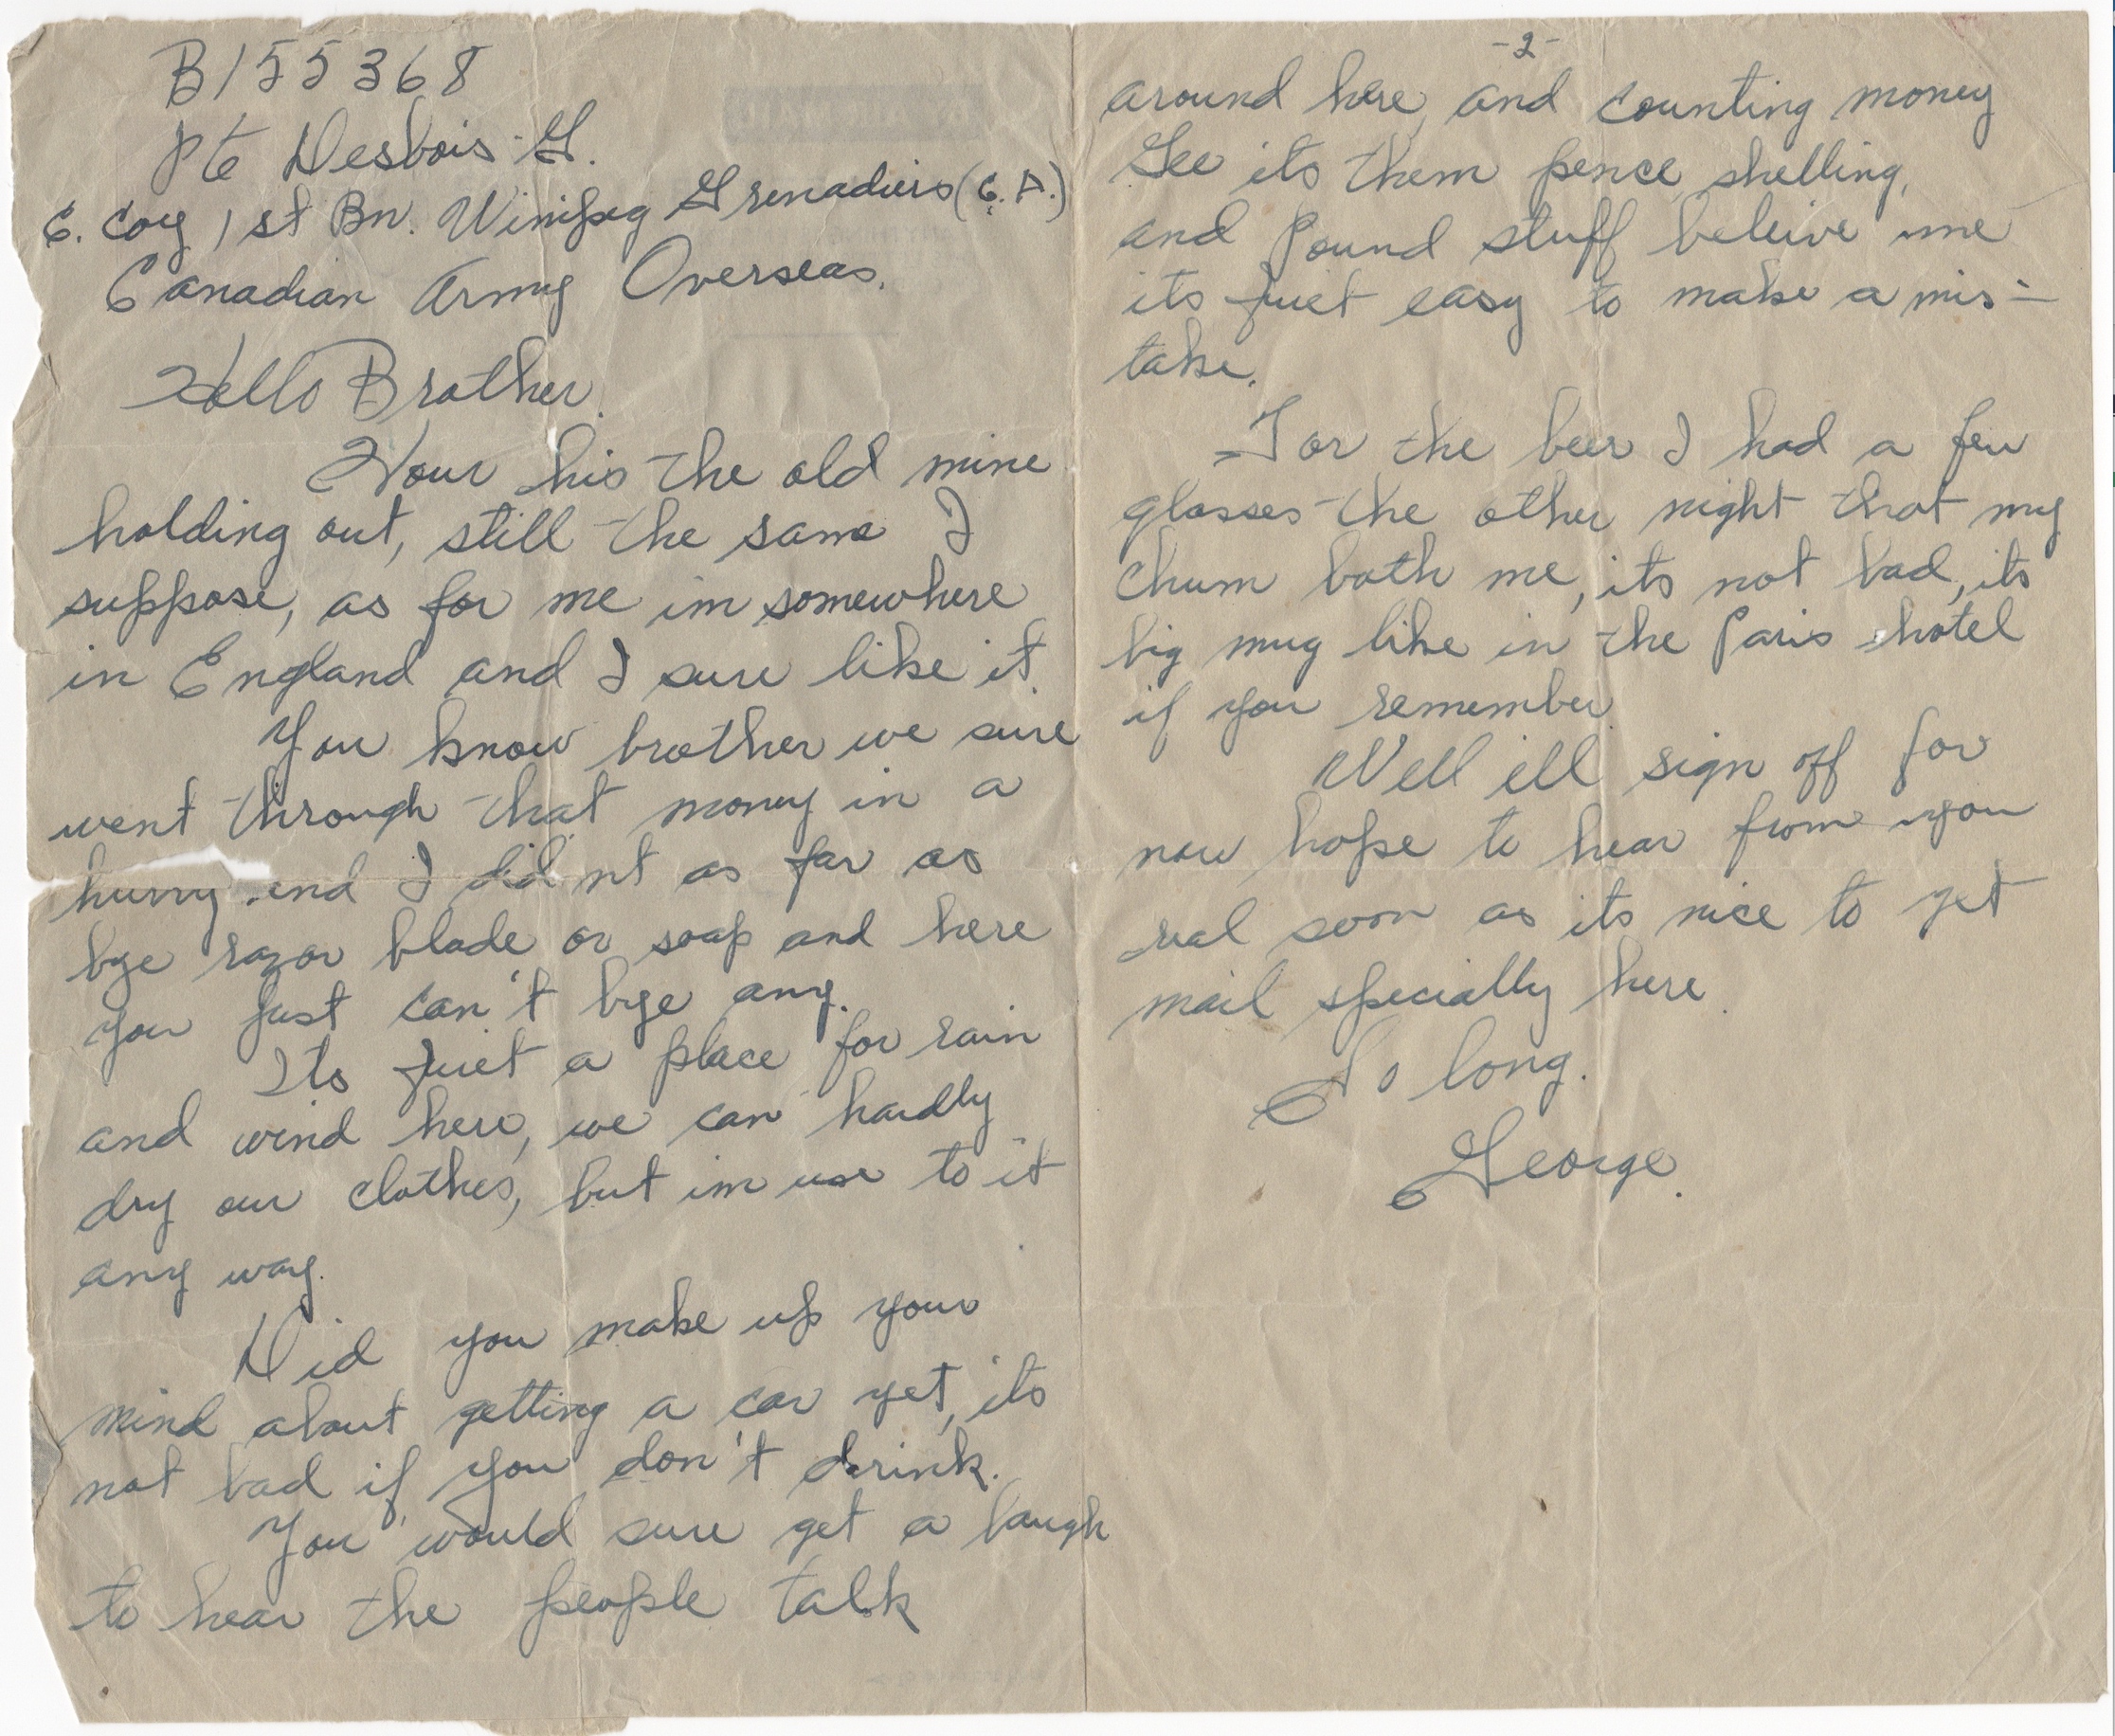 B155368
Pte Desbois G.
C. Coy 1st Bn. Winipeg Grenadiers (C.A.)
Canadian Army Overseas.
Hello Brother.
How his the old mine
holding out, still the same I
suppose, as for me im somewhere
in England and I sure like it.
You know brother we sure
went through that money in a
hurry and I did nt as far as
bye razor blade or soap and here
you just can't bye any.
Its just a place for rain
and wind here, we can hardly
dry our clothes, but im use to it
any way.
Did you make up your
mind about getting a car yet, its
not bad if you don't drink.
You would sure get a laugh
to hear the people talk
-2-
around here, and counting money
Gee its them pence, shelling,
and Pound stuff beleive me
its just easy to make a mis-
take.
For the beer I had a few
glasses the other night that my
chum both me, its not bad, its
big mug like in the Paris hotel
if you remember.
Well ill sign off for
now hope to hear from you
real soon as its nice to get
mail specially here.
So long.
George.